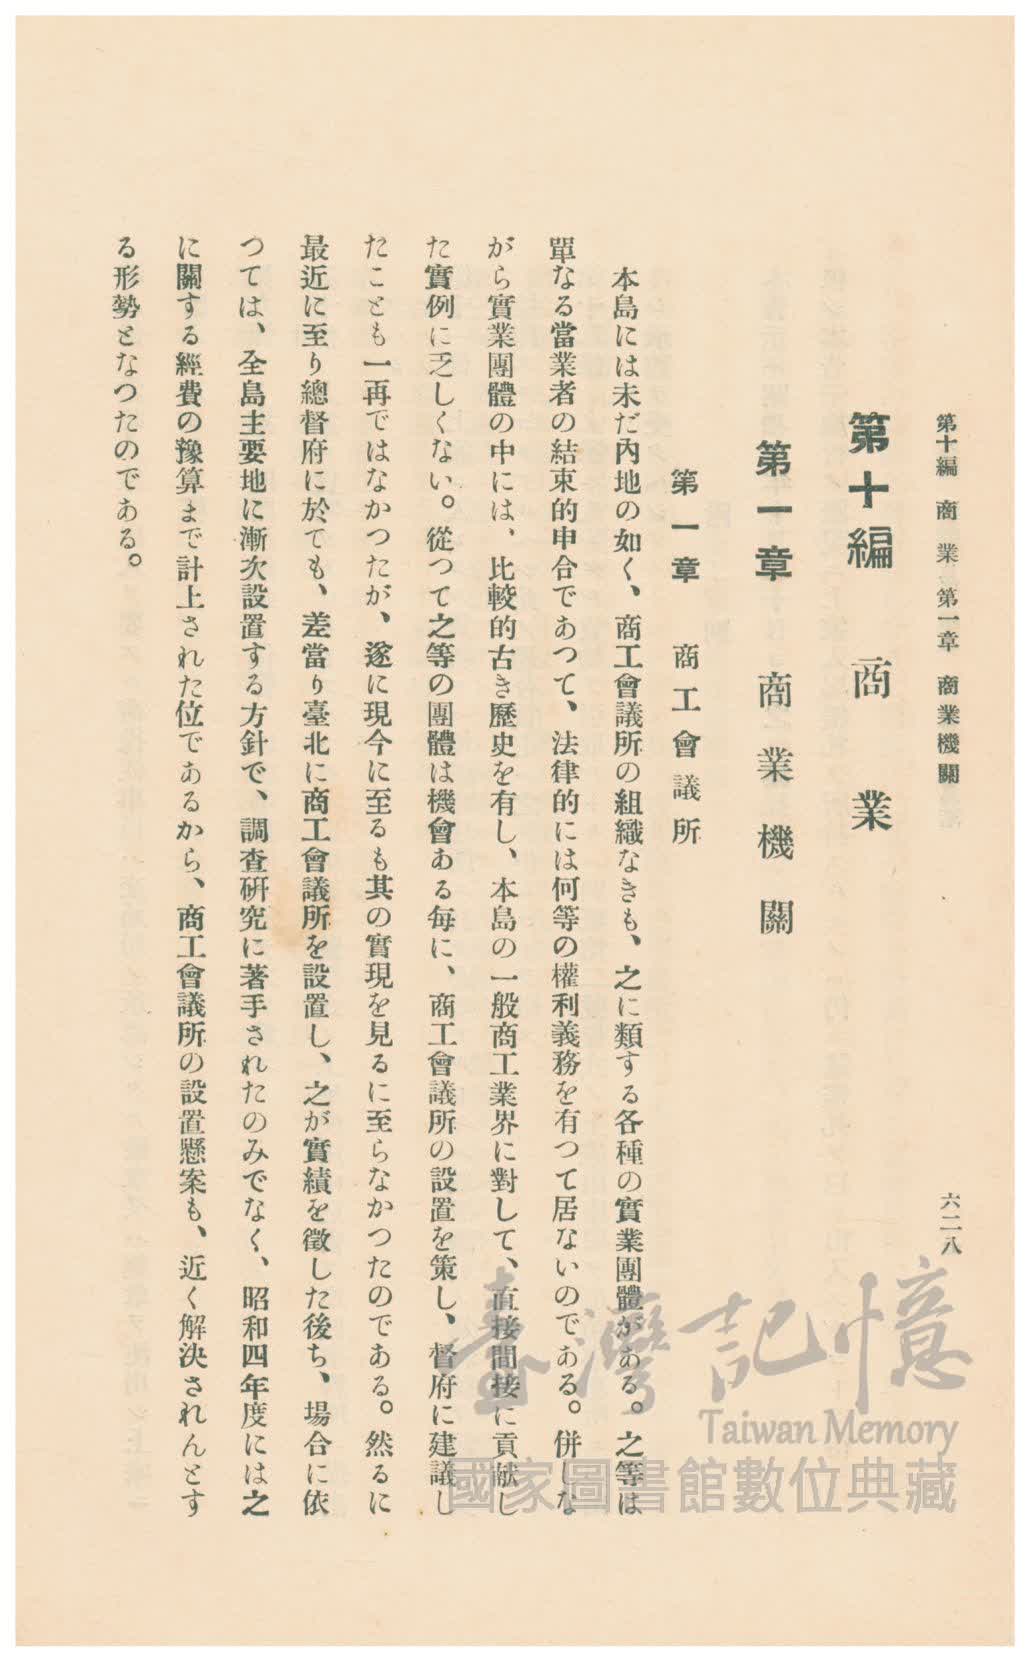 第十編　商　業　第一章　商業機關
六二八
第十編　商　業
第一章　商業機關
第一章　商工會議所
本島には未だ內地の如く、商工會議所の組織なきも、之に類する各種の實業團體がある。之等は
單なる當業者の結束的申合であつて、法律的には何等の權利義務を有つて居ないのである。併しな
がら實業團體の中には、比較的古き歷史を有し、本島の一般商工業界に對して、直接間接に貢献し
た實例に乏しくない。從つて之等の團體は機會ある每に、商工會議所の設置を策し、督府に建議し
たことも一再ではなかつたが、遂に現今に至るも其の實現を見るに至らなかつたのである。然るに
最近に至り總督府に於ても、差當り臺北に商工會議所を設置し、之が實績を徵した後ち、場合に依
つては、全島主要地に漸次設置する方針で、調查硏究に著手されたのみでなく、昭和四年度には之
に關する經費の豫算まで計上された位であるから、商工會議所の設置懸案も、近く解決されんとす
る形勢となつたのである。
臺灣記憶
Taiwan Memory
國家圖書館數位典藏